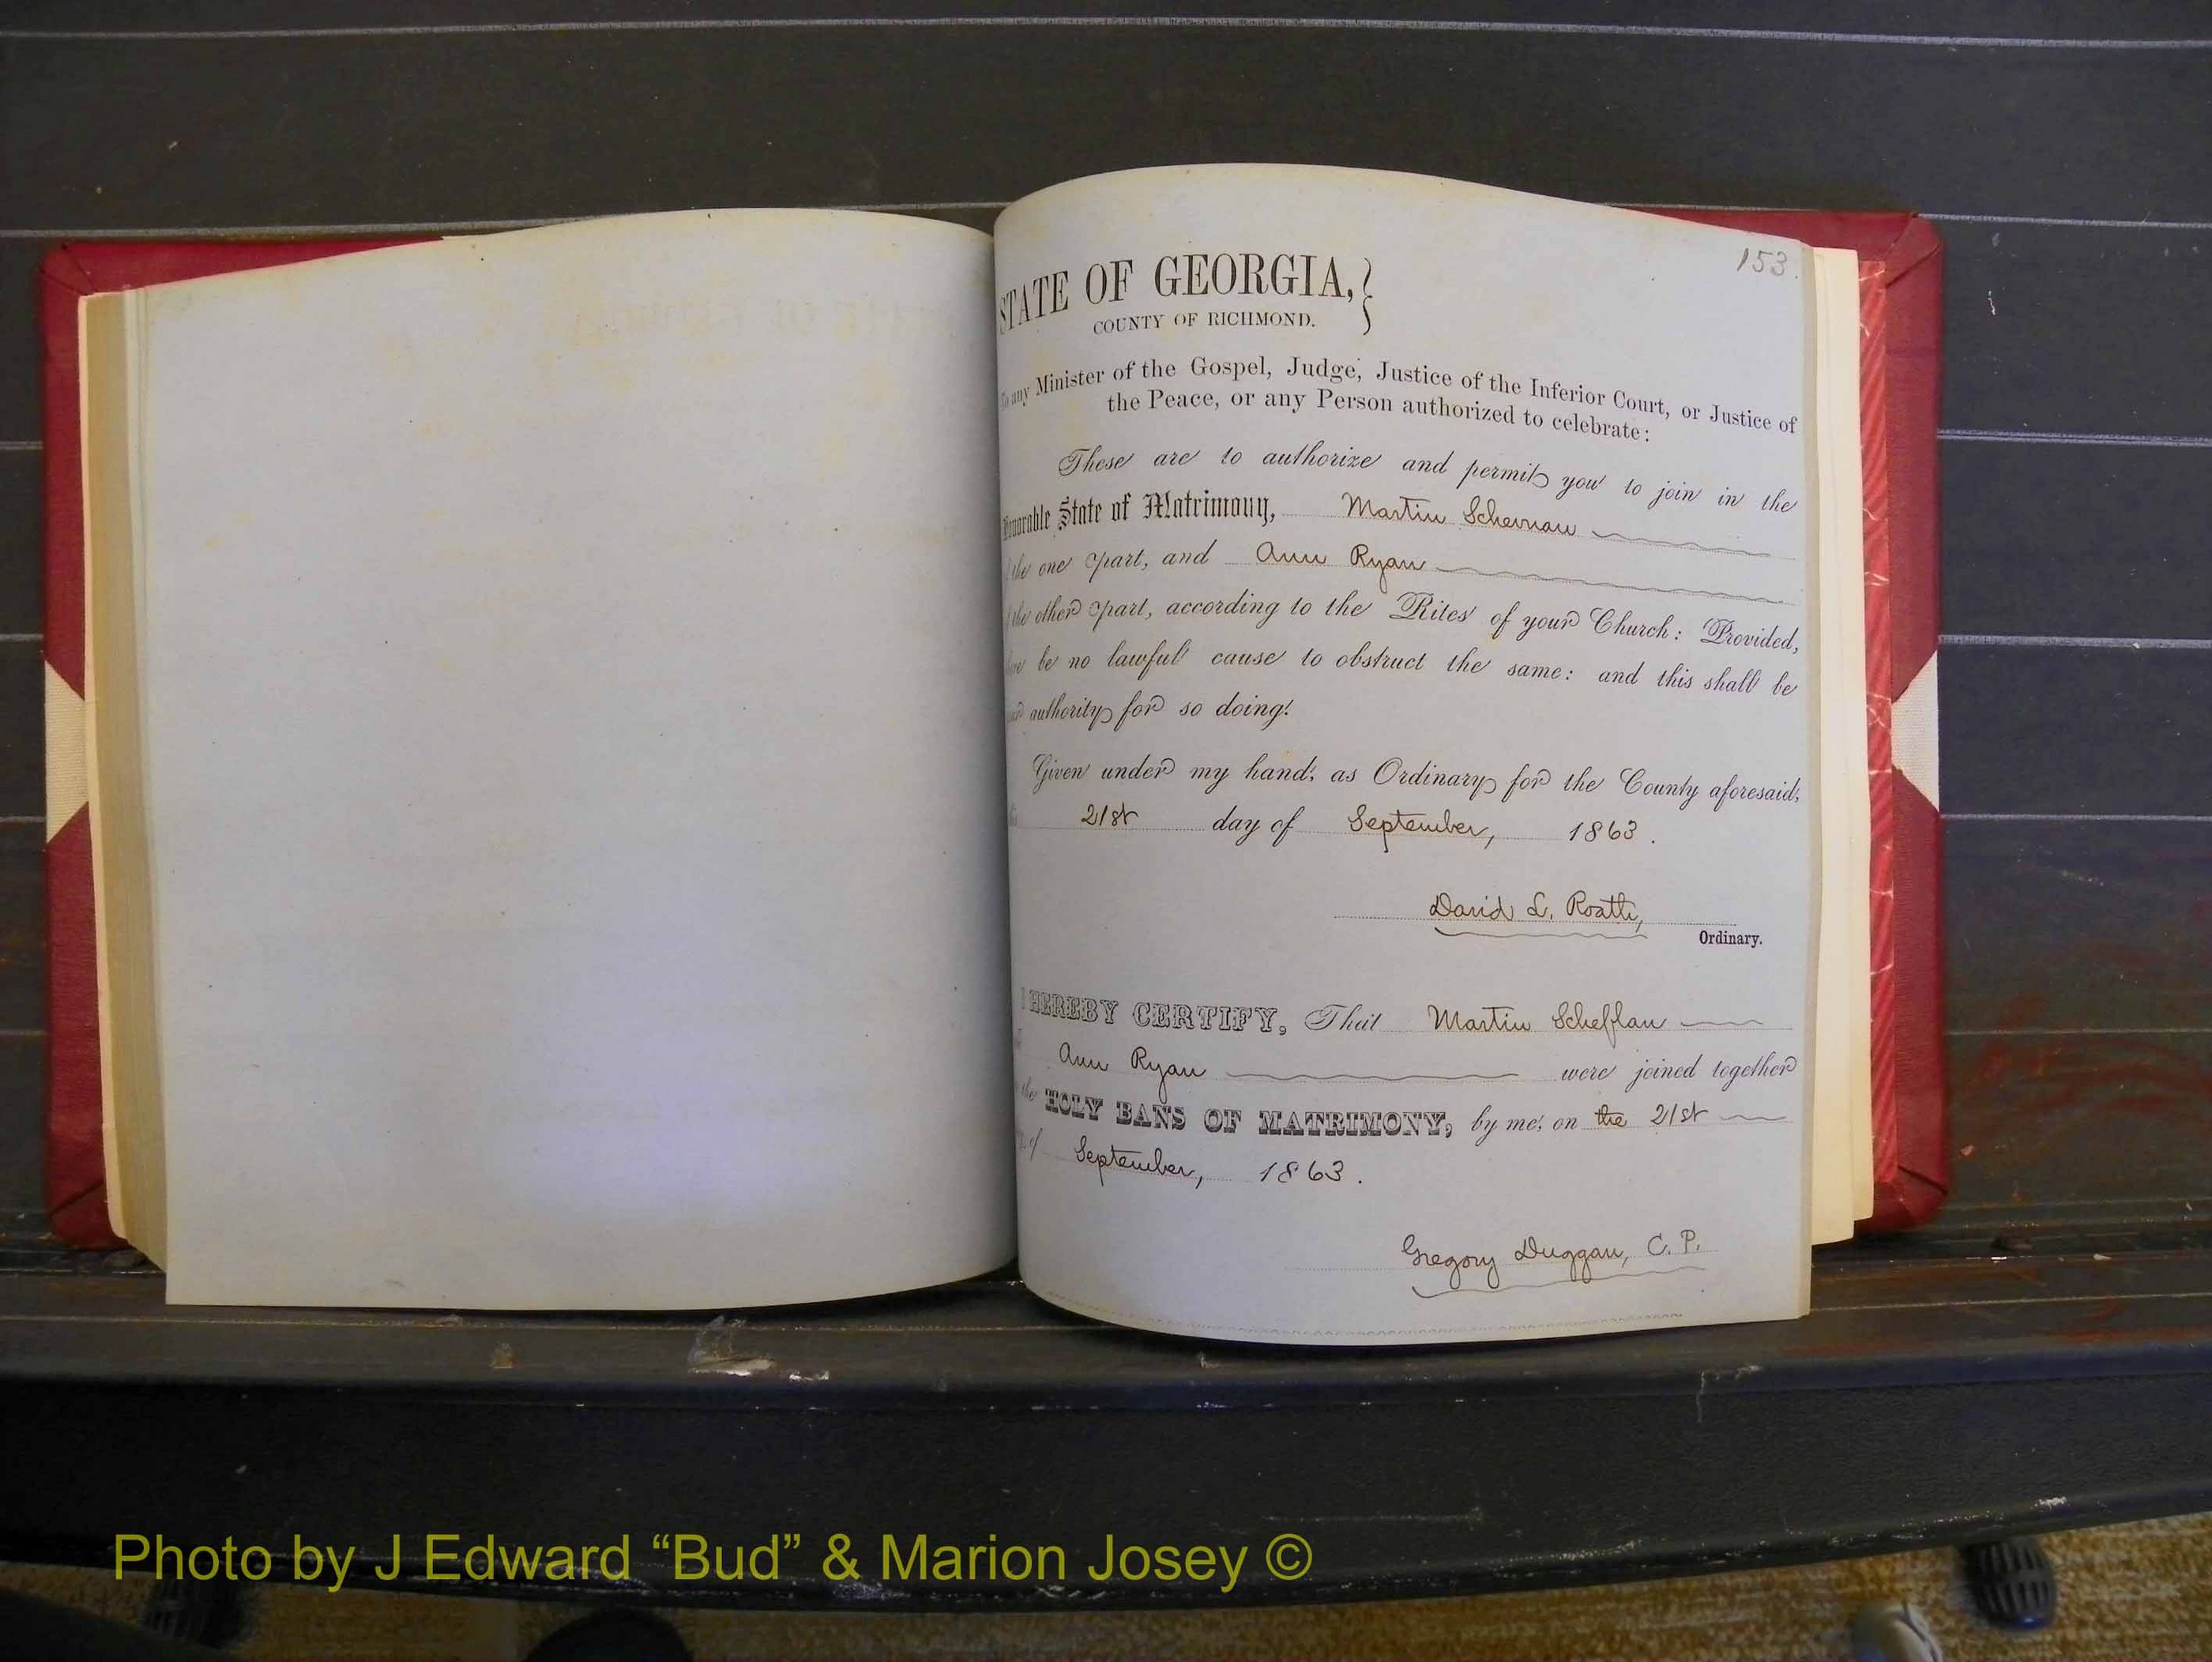 153.
STATE OF GEORGIA,
COUNTY OF RICHMOND.
To any Minister of the Gospel, Judge, Justice of the Inferior Court, or Justice of
the Peace, or any Person authorized to celebrate:
These are to authorize and permit you to join in the
Honorable State of Matrimony, Martin
the one part, and Ann Ryan
the other part, according to the Rites of your Church: Provided,
be no lawful cause to obstruct the same: and this shall be
authority for so doing.
Given under my hand, as Ordinary for the County aforesaid,
21st day of September, 1863.
David L. Roath,
Ordinary.
I HEREBY CERTIFY, That Martin Scheflan
Ann Ryan were joined together
the HOLY BANS OF MATRIMONY, by me, on the 21st
of September, 1863.
Gregory Duggan, C. P.
Photo by J Edward “Bud” & Marion Josey ©